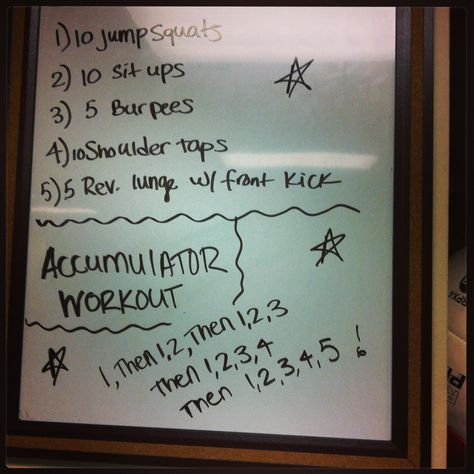 1) 10 Jump Squats
2) 10 Sit ups
3) 5 Burpees
4) 10 Shoulder taps
5) 5 Rev. lunge w/ front Kick
ACCUMULATOR
WORKOUT
1, Then 1,2, Then 1,2,3
then 1,2,3,4
Then 1,2,3,4,5 !